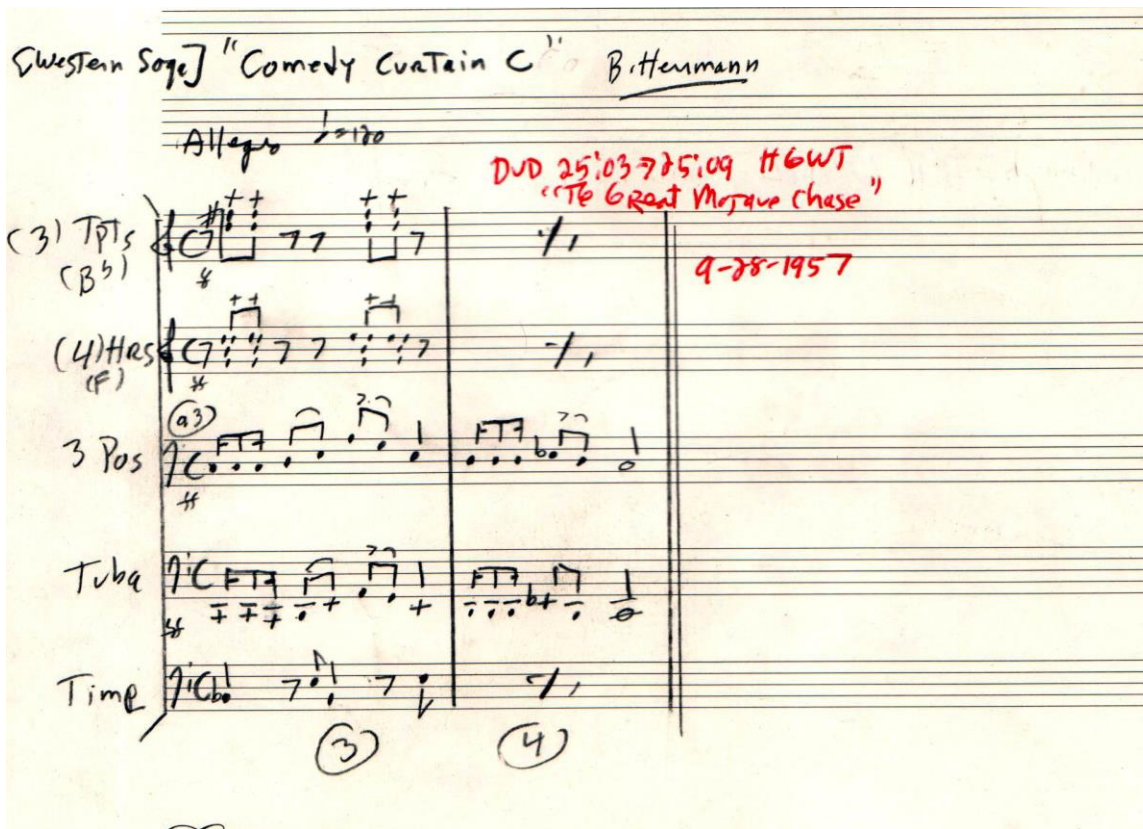 [Western Saga] "Comedy Curtain C" B. Herrmann
Allegro ♩=120
DVD 25:03→25:09 HGWT
"The Great Mojave Chase"
9-28-1957
(3) Tpts
(Bb)
(4) HRS
(F)
(a3)
3 Pos
Tuba
Timp
3
4